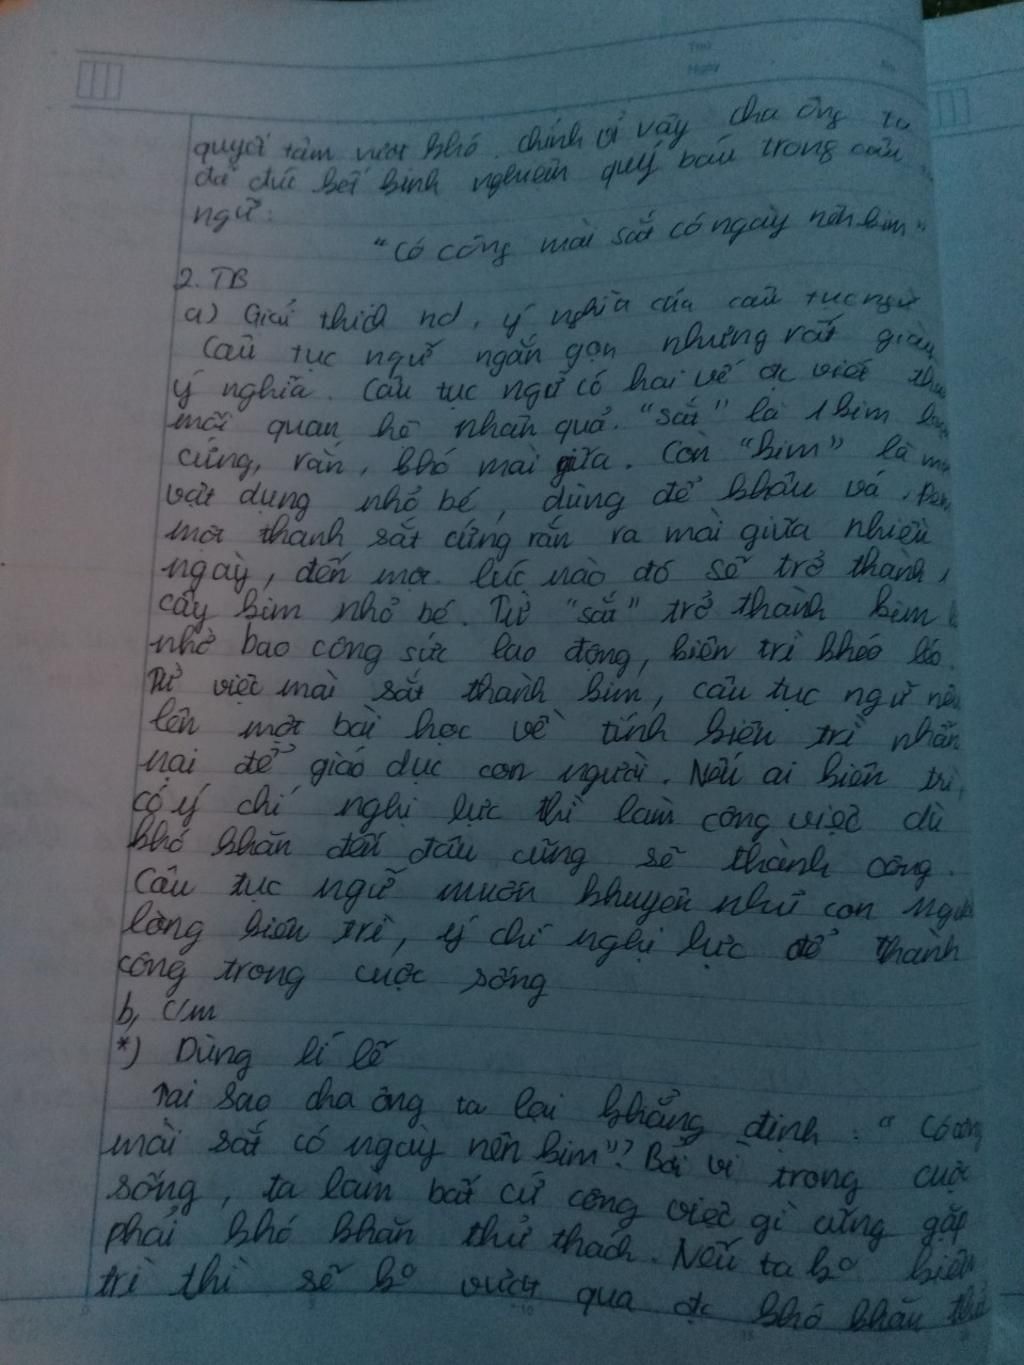 Thứ
Ngày
quyết tâm vượt khó. chính vì vậy cha ông ta
đã đúc kết kinh nghiệm quý báu trong câu
ngữ:
"Có công mài sắt có ngày nên kim"
2. TB
a) Giải thích nd, ý nghĩa của câu tục ngữ
Câu tục ngữ ngắn gọn nhưng rất giàu
ý nghĩa. Câu tục ngữ có hai vế đc viết
mối quan hệ nhân quả. "sắt" là 1 kim
cứng, rắn, khó mài giữa. Còn "kim" là
vật dụng nhỏ bé, dùng để khâu vá.
một thanh sắt cứng rắn ra mài giữa nhiều
ngày, đến một lúc nào đó sẽ trở thành
cây kim nhỏ bé. Từ "sắt" trở thành kim
nhờ bao công sức lao động, kiên trì khéo léo.
Từ việc mài sắt thành kim, câu tục ngữ nêu
lên một bài học về tính kiên trì nhẫn
nại để giáo dục con người. Nếu ai kiên trì,
có ý chí nghị lực thì làm công việc dù
khó khăn đến đâu cũng sẽ thành công.
Câu tục ngữ muốn khuyên nhủ con người
lòng kiên trì, ý chí nghị lực để thành
công trong cuộc sống
b, C/m
*) Dùng lí lẽ
Tại sao cha ông ta lại khẳng định: "Có công
mài sắt có ngày nên kim"? Bởi vì trong cuộc
sống, ta làm bất cứ công việc gì cũng gặp
phải khó khăn thử thách. Nếu ta ko kiên
trì thì sẽ ko vượt qua đc khó khăn thử